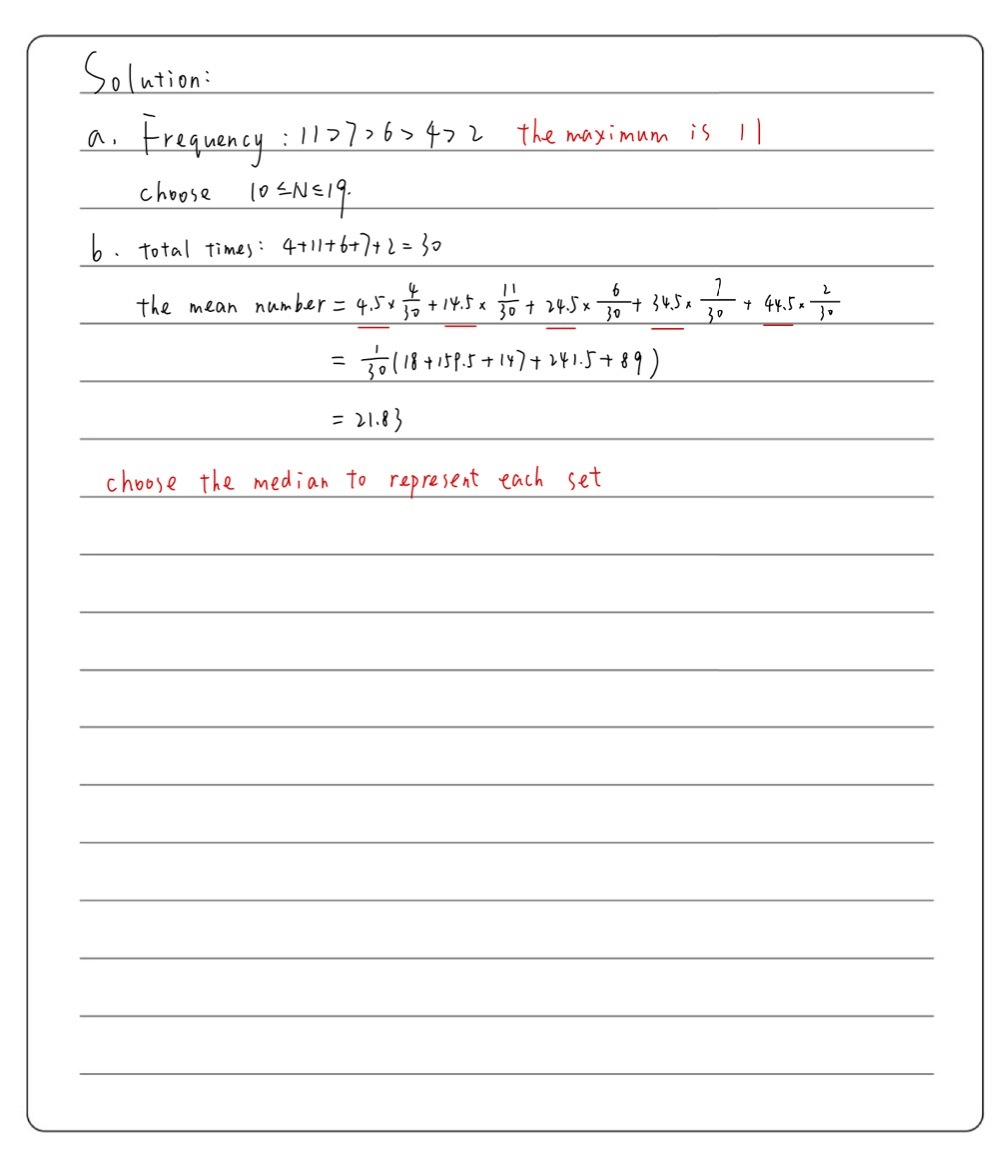 Solution:
a. Frequency : 11>7>6>4>2 the maximum is 11
choose 10≤N≤19.
b. total times: 4+11+6+7+2=30
the mean number = 4.5×4/30+14.5×11/30+24.5×6/30+34.5×7/30+44.5×2/30
= 1/30(18+159.5+147+241.5+89)
= 21.83
choose the median to represent each set